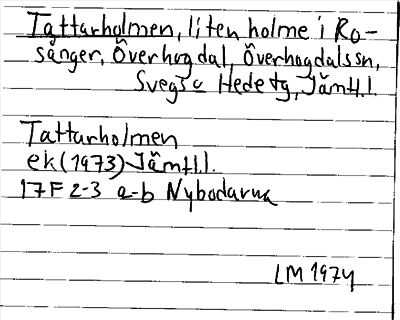 Tattarholmen, liten holme i Ro-
sånger, Överhogdal, Överhogdalssn,
Svegs o Hede tg, Jämtl.l.
Tattarholmen
ek (1973) Jämtl.l.
17F 2-3 a-b Nybodarna
LM 1974